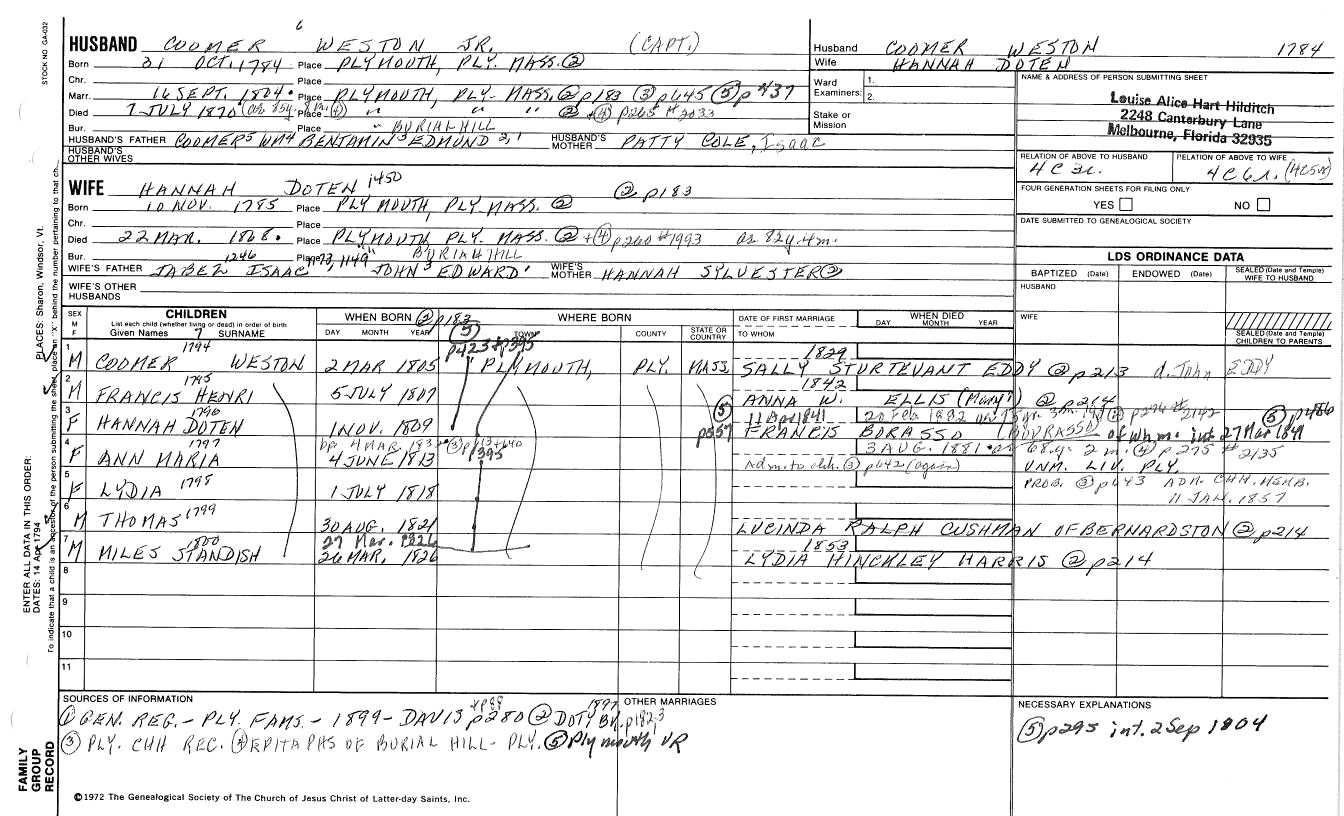 STOCK NO. GA-032
6
HUSBAND COOMER WESTON JR. (CAPT.)
Born 31 OCT. 1784 Place PLYMOUTH, PLY. MASS. ②
Chr. Place
Marr. 16 SEPT. 1804. Place PLYMOUTH, PLY. MASS. ② p183 ③ p645 ⑤ p437
Died 7 JULY 1870 (as 85y. 8m. ④) Place " " " ② + ④ p265 # 2033
Bur. Place " BURIAL HILL
HUSBAND'S FATHER COOMER5 WM4 BENJAMIN3 EDMUND2,1 HUSBAND'S MOTHER PATTY COLE, Isaac
HUSBAND'S OTHER WIVES
Husband COOMER WESTON 1784
Wife HANNAH DOTEN
Ward Examiners: 1.
2.
Stake or Mission
NAME & ADDRESS OF PERSON SUBMITTING SHEET
Louise Alice Hart Hilditch
2248 Canterbury Lane
Melbourne, Florida 32935
RELATION OF ABOVE TO HUSBAND RELATION OF ABOVE TO WIFE
4C 3r. 4C 6r. (4C5r)
FOUR GENERATION SHEETS FOR FILING ONLY
YES NO
DATE SUBMITTED TO GENEALOGICAL SOCIETY
WIFE HANNAH DOTEN 1450 ② p183
Born 10 NOV. 1785 Place PLYMOUTH, PLY. MASS. ②
Chr. Place
Died 22 MAR. 1868. Place PLYMOUTH, PLY. MASS. ② + ④ p260 # 1993 as 82y. 4m.
Bur. Place " " BURIAL HILL
1246 1173, 1149
WIFE'S FATHER JABEZ ISAAC JOHN3 EDWARD1 WIFE'S MOTHER HANNAH SYLVESTER ②
WIFE'S OTHER HUSBANDS
LDS ORDINANCE DATA
BAPTIZED (Date) ENDOWED (Date) SEALED (Date and Temple) WIFE TO HUSBAND
HUSBAND
WIFE
SEALED (Date and Temple) CHILDREN TO PARENTS
SEX M F
CHILDREN
List each child (whether living or dead) in order of birth
Given Names 7 SURNAME
WHEN BORN ② p183
DAY MONTH YEAR
WHERE BORN
TOWN COUNTY STATE OR COUNTRY
DATE OF FIRST MARRIAGE
TO WHOM
WHEN DIED
DAY MONTH YEAR
⑤ p423 + p395
1794 1829
1 M COOMER WESTON 2 MAR 1805 PLYMOUTH, PLY. MASS. SALLY STURTEVANT EDDY ② p213 d. John EDDY
1795 1842
2 M FRANCIS HENRI 5 JULY 1807 ANNA W. ELLIS (Mary?) ② p214
1796 ⑤ p557 11 Ap 1841 20 Feb 1882 # 2142 ⑤ p486
3 F HANNAH DOTEN 1 NOV. 1809 FRANCIS BORASSO (BOURASSO) of Wh m. int 27 Mar 1841
1797 bp 4 MAR. 1832. p395 3 AUG. 1881. as 68 y. 2 m. ④ p275 # 2135
4 F ANN MARIA 4 JUNE 1813 Adm. to chh. ③ p642 (again) UNM. LIV. PLY.
1798 PROB. ③ p643 ADM. CHH. MEMB.
5 F LYDIA 1 JULY 1818 11 JAN. 1857
1799
6 M THOMAS 30 AUG. 1821 LUCINDA RALPH CUSHMAN OF BERNARDSTON ② p214
1800 27 Mar. 1826 1853
7 M MILES STANDISH 26 MAR. 1826 LYDIA HINCKLEY HARRIS ② p214
8
9
10
11
SOURCES OF INFORMATION
① GEN. REG. - PLY. FAMS. - 1899 - DAVIS p280 + p88 ② DOTY BK. 1897 p182-3
③ PLY. CHH REC. ④ EPITAPHS OF BURIAL HILL - PLY. ⑤ Plymouth VR
OTHER MARRIAGES
NECESSARY EXPLANATIONS
⑤ p295 int. 2 Sep 1804
©1972 The Genealogical Society of The Church of Jesus Christ of Latter-day Saints, Inc.
FAMILY GROUP RECORD
ENTER ALL DATA IN THIS ORDER:
DATES: 14 Apr 1794
PLACES: Sharon, Windsor, Vt.
To indicate that a child is an ancestor of the person submitting the sheet, place an "X" behind the number pertaining to that ch.